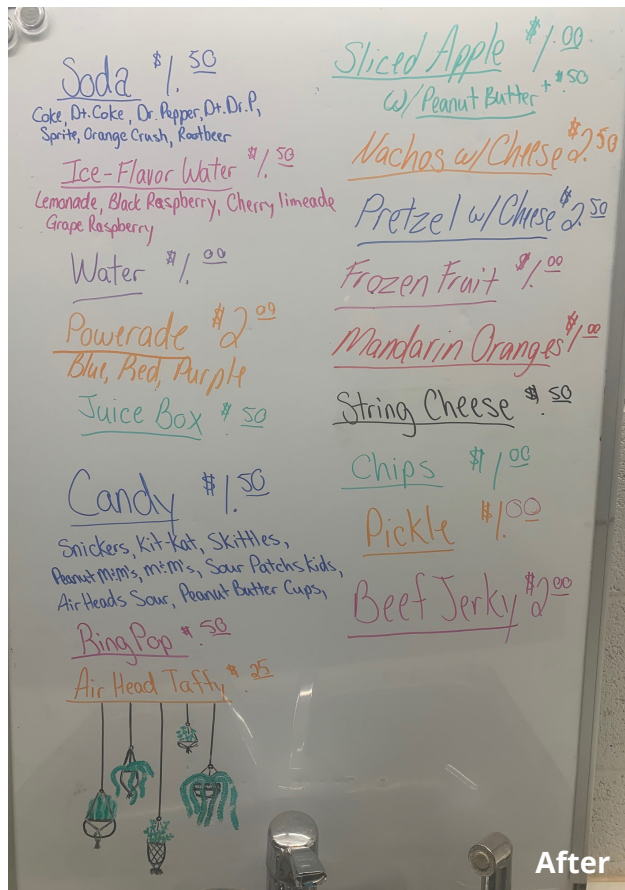 Soda $1.50
Coke, Dt. Coke, Dr. Pepper, Dt. Dr. P,
Sprite, Orange Crush, Rootbeer
Ice-Flavor Water $1.50
Lemonade, Black Raspberry, Cherry limeade
Grape Raspberry
Water $1.00
Powerade $2.00
Blue, Red, Purple
Juice Box $.50
Candy $1.50
Snickers, Kit-Kat, Skittles,
Peanut M:M's, m:m's, Sour Patchs kids,
Air Heads Sour, Peanut Butter Cups,
Ring Pop $.50
Air Head Taffy $.25
Sliced Apple $1.00
w/ Peanut Butter + $.50
Nachos w/Cheese $2.50
Pretzel w/Cheese $2.50
Frozen Fruit $1.00
Mandarin Oranges $1.00
String Cheese $.50
Chips $1.00
Pickle $1.00
Beef Jerky $2.00
After